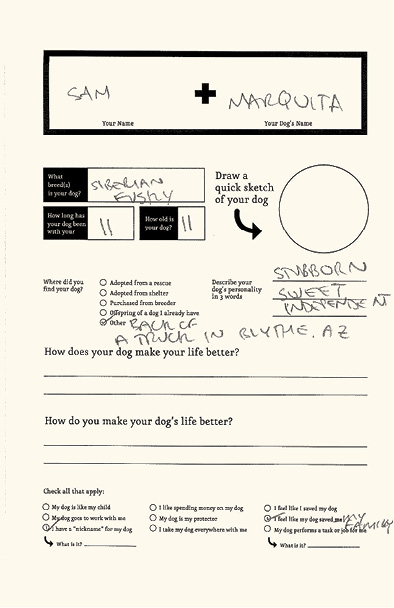 SAM + MARQUITA
Your Name Your Dog's Name
What breed(s) is your dog? SIBERIAN HUSKY
How long has your dog been with your 11 How old is your dog? 11
Draw a quick sketch of your dog
Where did you find your dog?
Adopted from a rescue
Adopted from shelter
Purchased from breeder
Offspring of a dog I already have
Other BACK OF A TRUCK IN BLYTHE, AZ
Describe your dog's personality in 3 words
STUBBORN
SWEET
INDEPENDENT
How does your dog make your life better?
How do you make your dog's life better?
Check all that apply:
My dog is like my child
My dog goes to work with me
I have a "nickname" for my dog
What is it?
I like spending money on my dog
My dog is my protector
I take my dog everywhere with me
I feel like I saved my dog
I feel like my dog saved me/MY FAMILY
My dog performs a task or job for me
What is it?